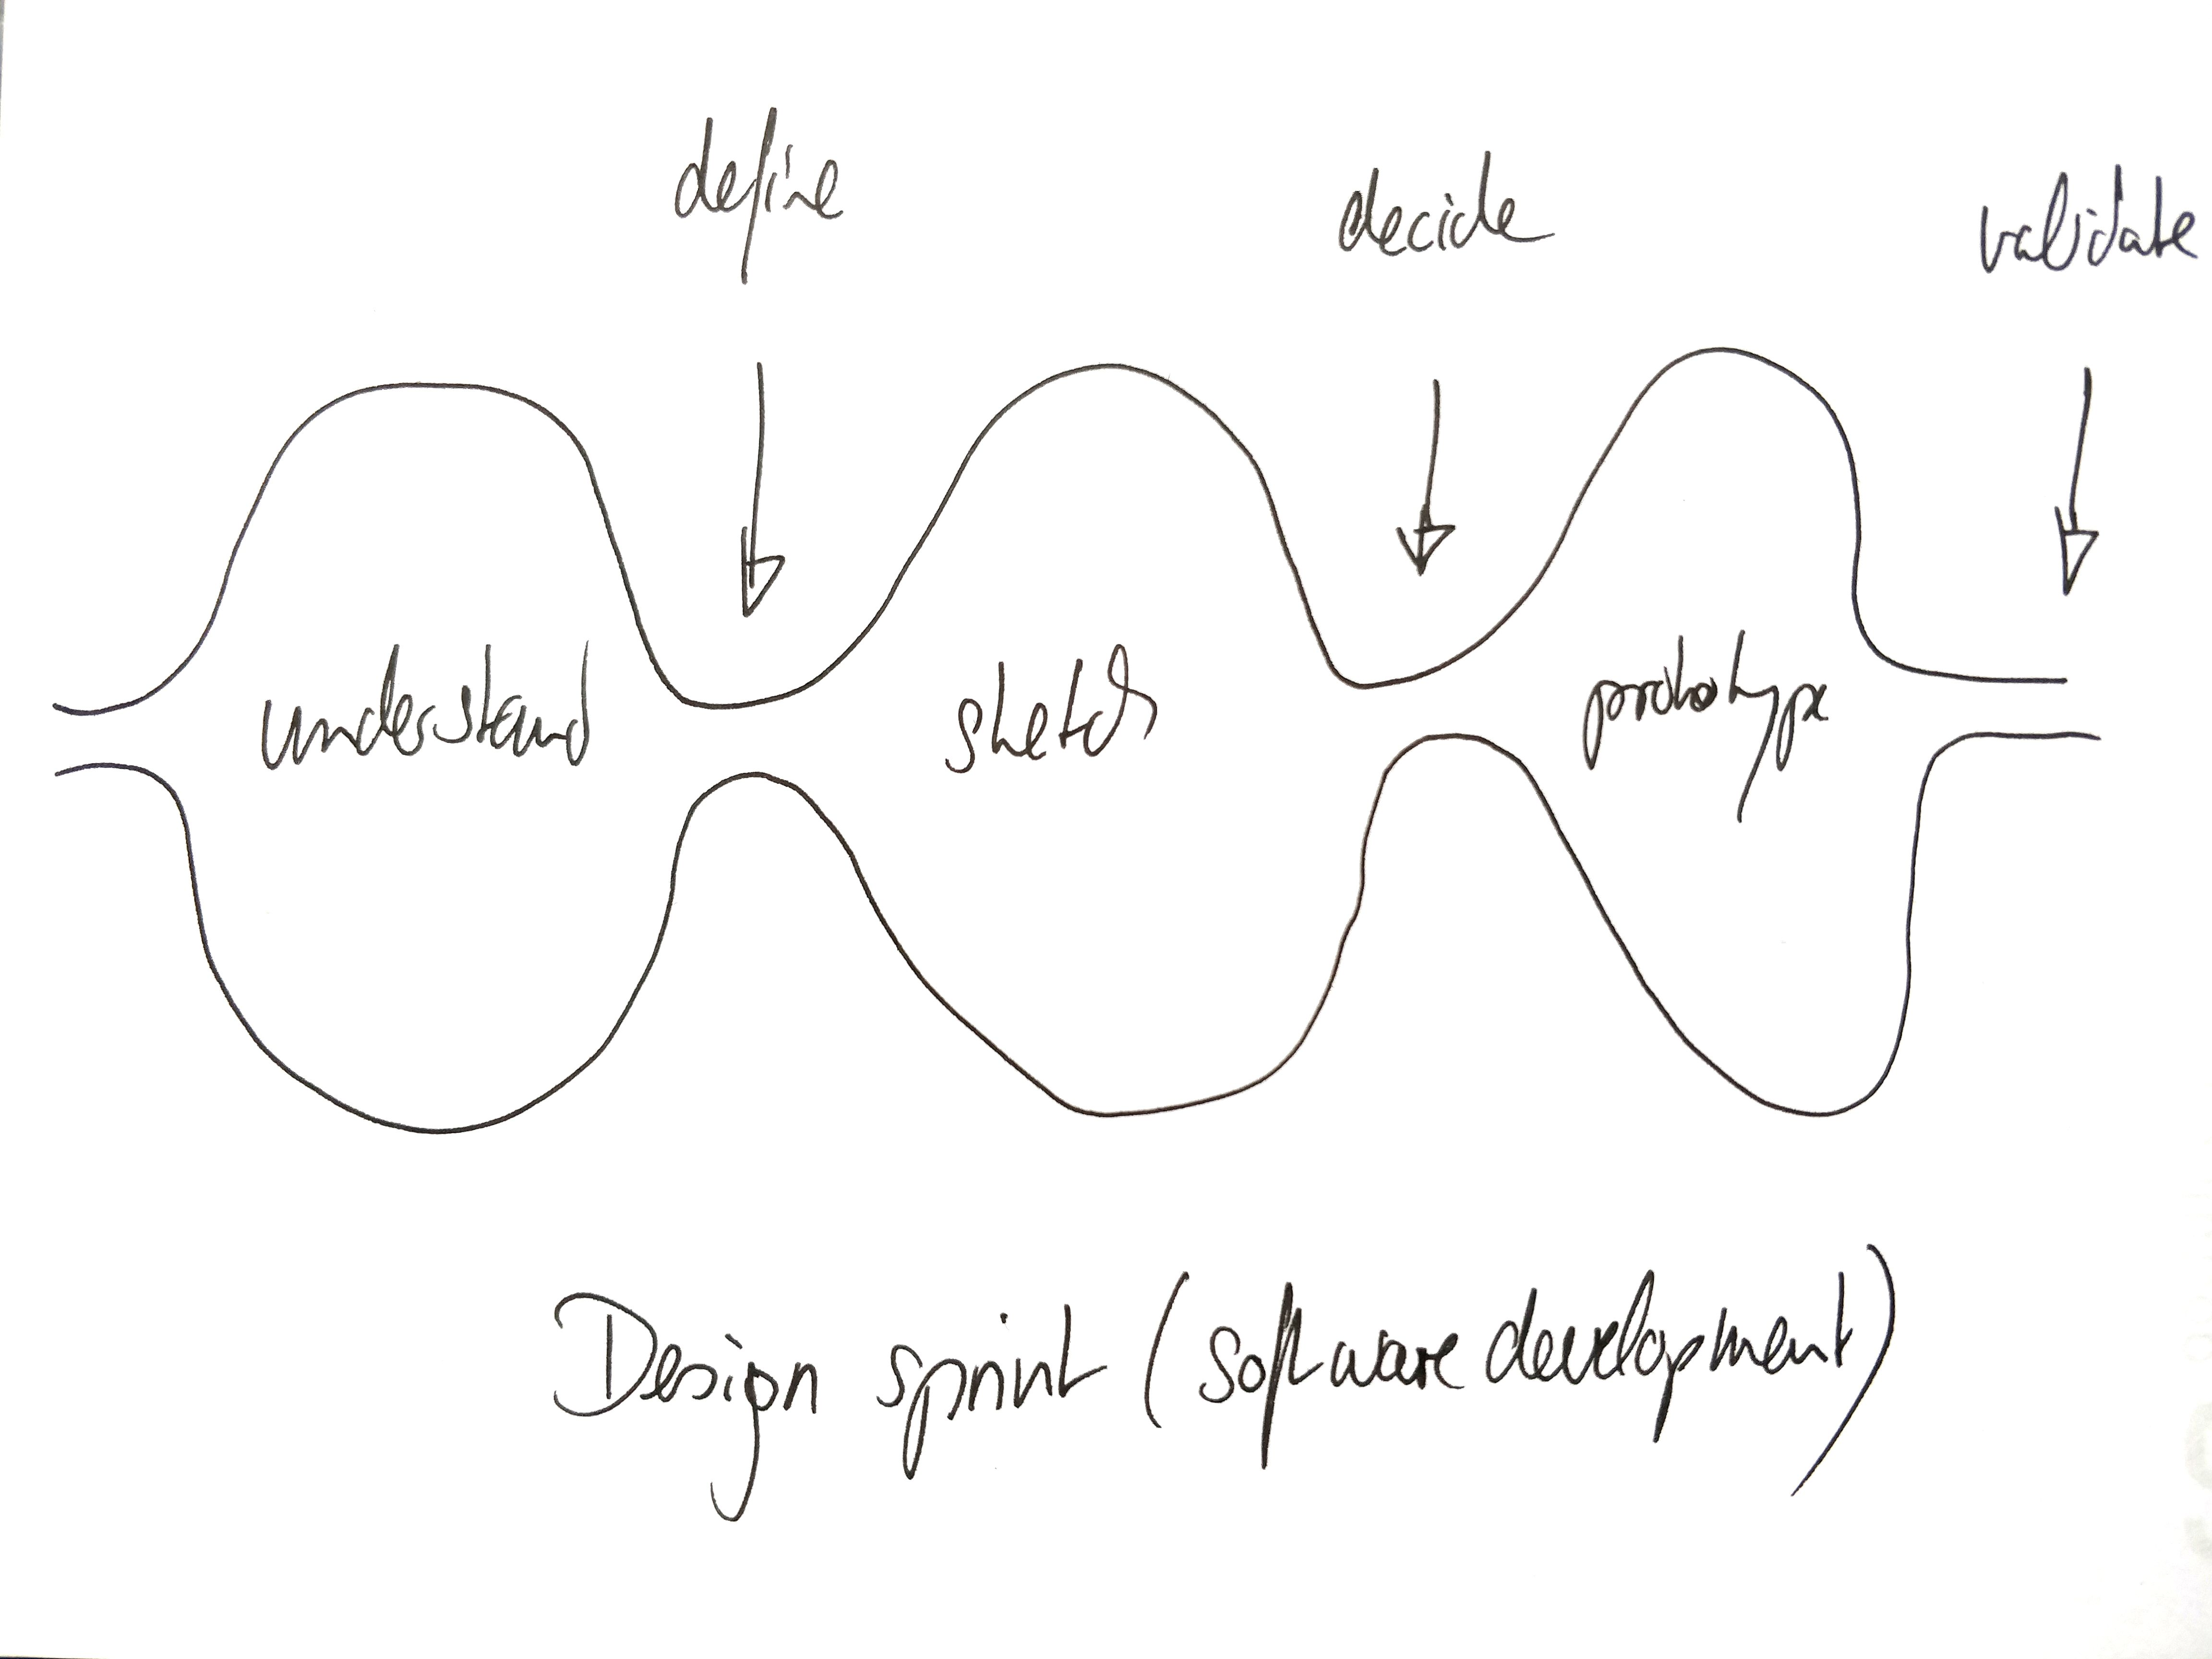 define
decide
validate
understand
sketch
prototype
Design sprint (software development)